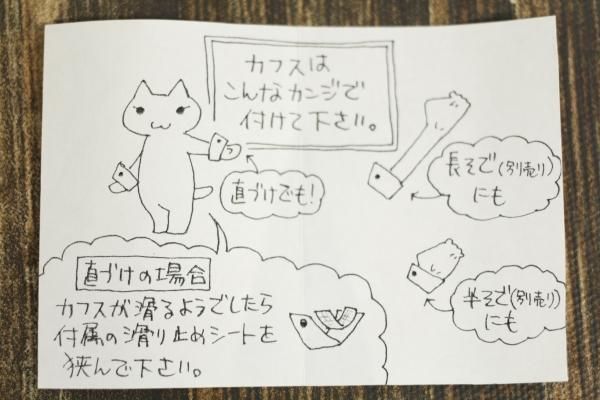 カフスは
こんなカンジで
付けて下さい。
直づけでも!
長そで(別売り)
にも
半そで(別売り)
にも
直づけの場合
カフスが滑るようでしたら
付属の滑り止めシートを
挟んで下さい。